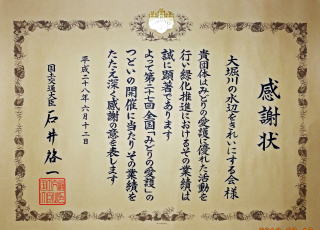 感謝状
大堀川の水辺をきれいにする会様
貴団体はみどりの愛護に優れた活動を
行い緑化推進におけるその業績は
誠に顕著であります
よって第二十七回全国「みどりの愛護」の
つどいの開催に当たりその業績を
たたえ深く感謝の意を表します
平成二十八年六月十二日
国土交通大臣 石井啓一